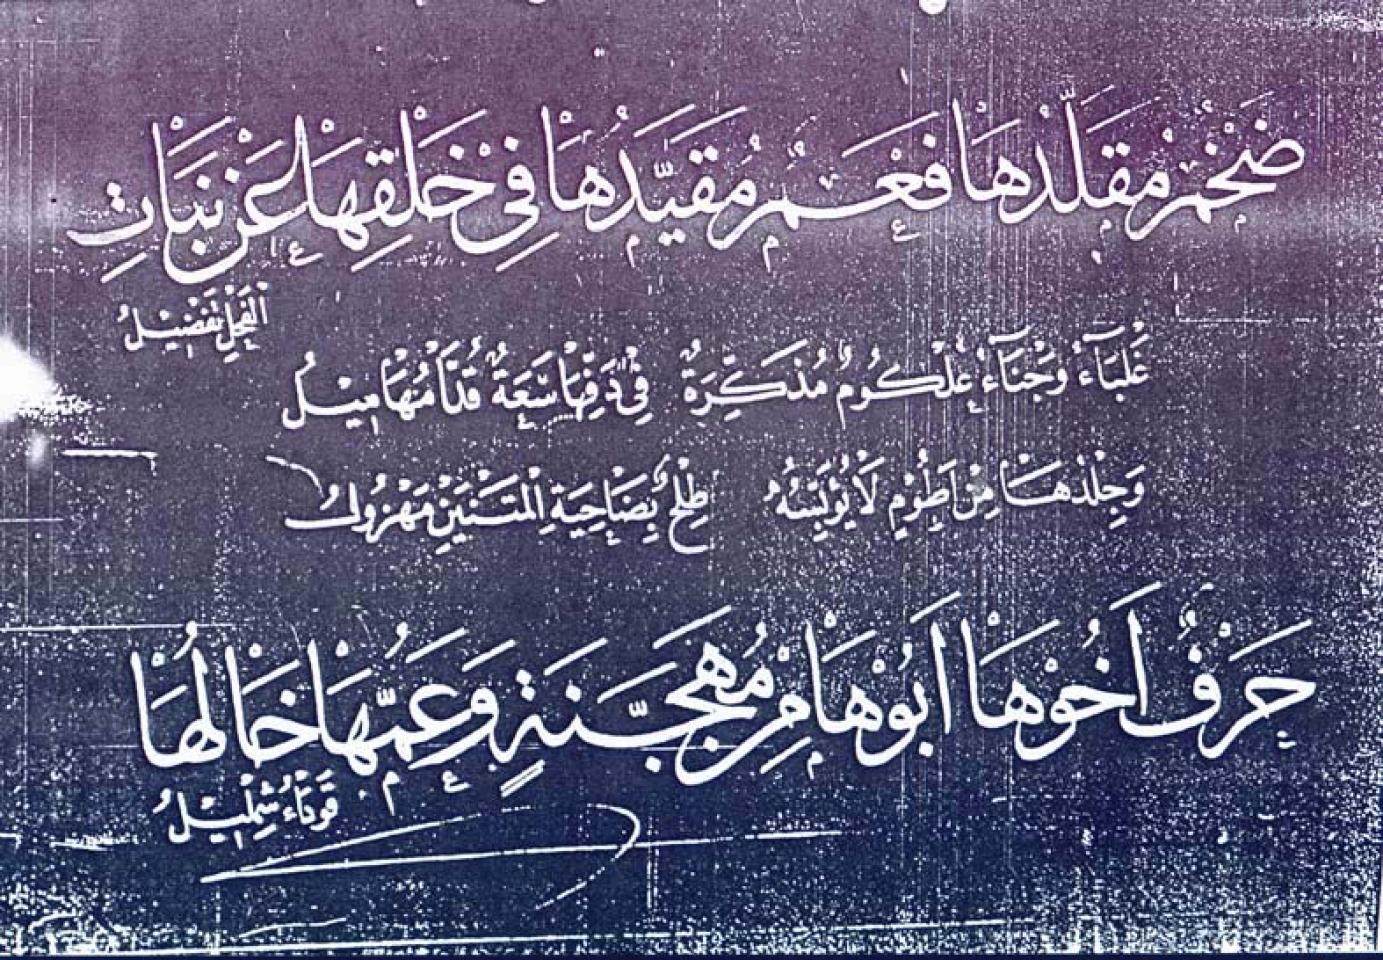 ضَخْمٌ مُقَلَّدُهَا فَعْمٌ مُقَيَّدُهَا فِي خَلْقِهَا عَنْ بَنَاتِ
الْفَحْلِ تَفْضِيْلُ
غَلْبَاءُ وَجْنَاءُ عُلْكُومٌ مُذَكَّرَةٌ فِيْ دَفِّهَا سَعَةٌ قُدَّامُهَا مِيْلُ
وَجِلْدُهَا مِنْ اَطُوْمٍ لَا يُؤَبِّسُهُ طِلْحٌ بِضَاحِيَةِ الْمَتْنَيْنِ مَهْزُولُ
حَرْفٌ اَخُوْهَا اَبُوْهَا مِنْ مُهَجَّنَةٍ وَعَمُّهَا خَالُهَا
قَوْدَاءُ شِمْلِيْلُ